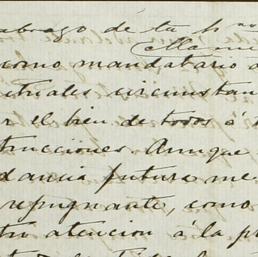 abrazo de tu h.no
como mandatario
ctuales circunstan
r el bien de todos á
trucciones. Aunque
dancia futura me
repugnante, como
tro atencion á la pr